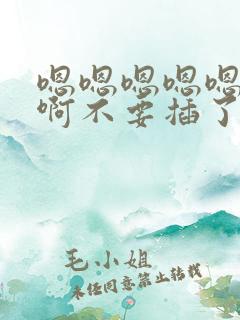 嗯嗯嗯嗯嗯
啊不要插了
毛小姐
未经同意禁止转载